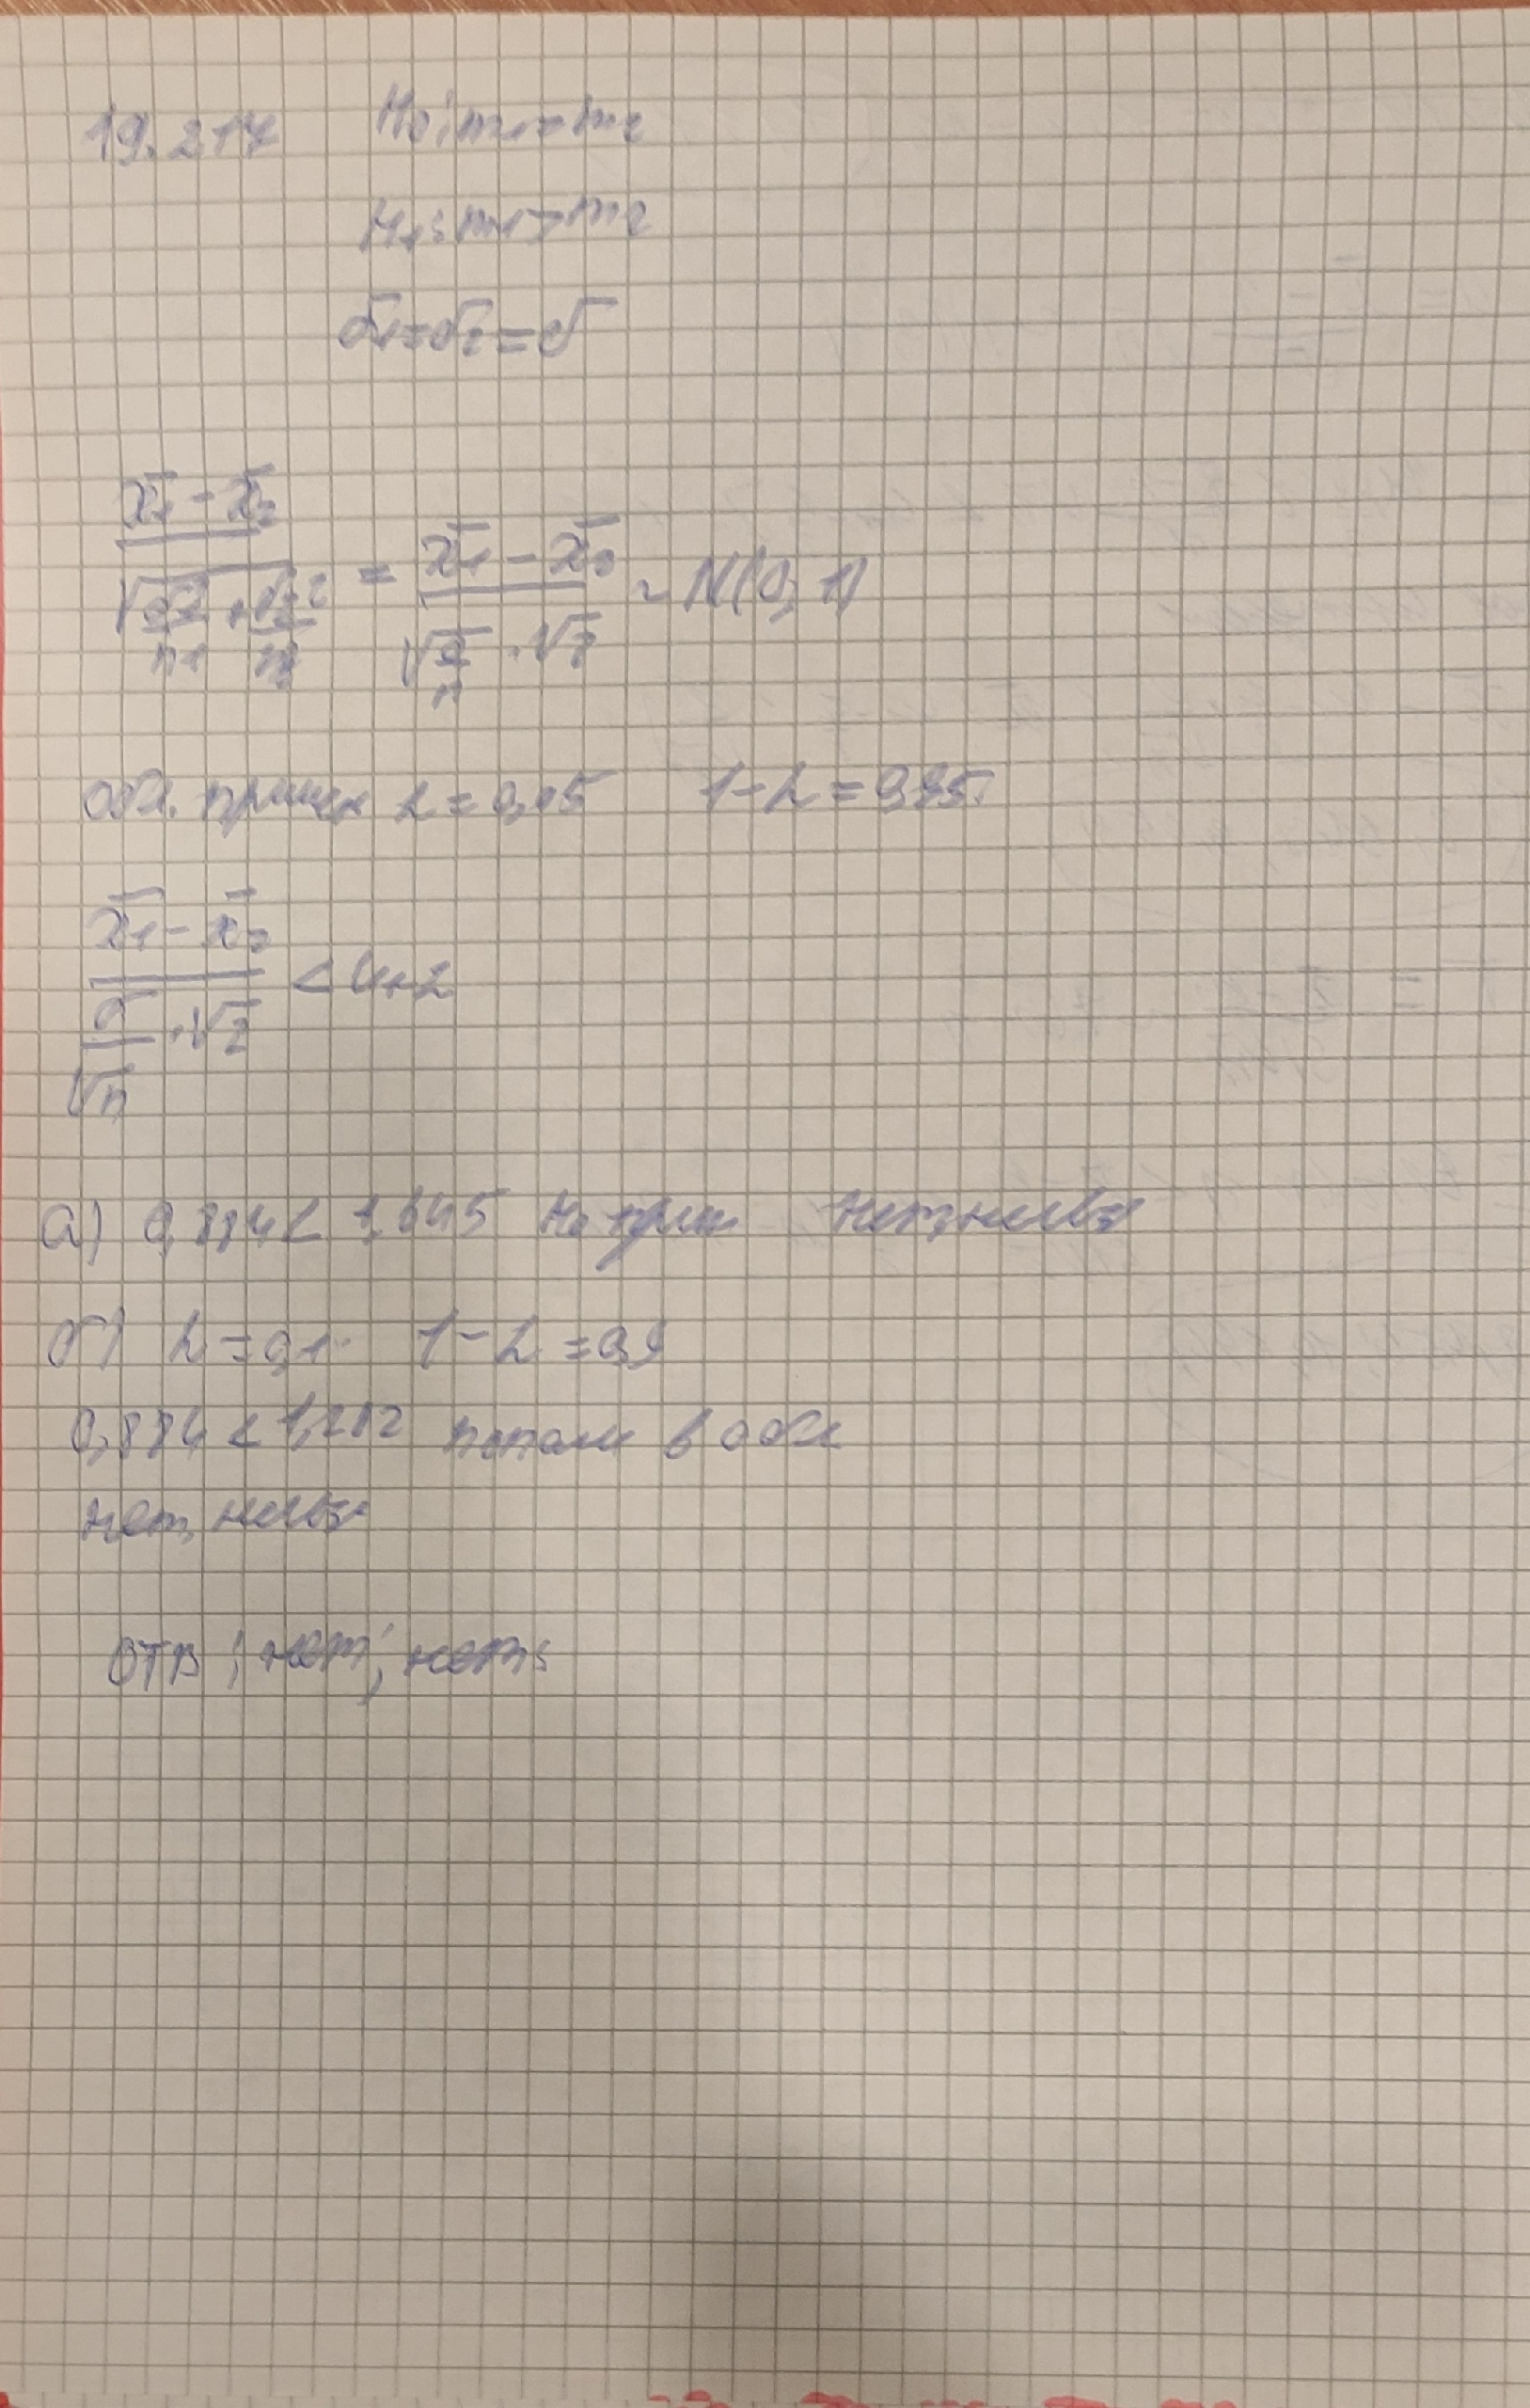 19.217 H₀: m₁ = m₂
H₁: m₁ > m₂
σ₁ = σ₂ = σ
(x̄₁ - x̄₂) / √(σ₁²/n₁ + σ₂²/n₂) = (x̄₁ - x̄₂) / (√(σ/n) · √2) ~ N(0, 1)
обл. принят α = 0,05 1 - α = 0,95
(x̄₁ - x̄₂) / (σ/√n · √2) < U₁₋α
а) 0,884 < 1,645 H₀ прин нет, нельзя
б) α = 0,1 1 - α = 0,9
0,884 < 1,282 попали в обл
нет, нельзя
ОТВ: нет; нет